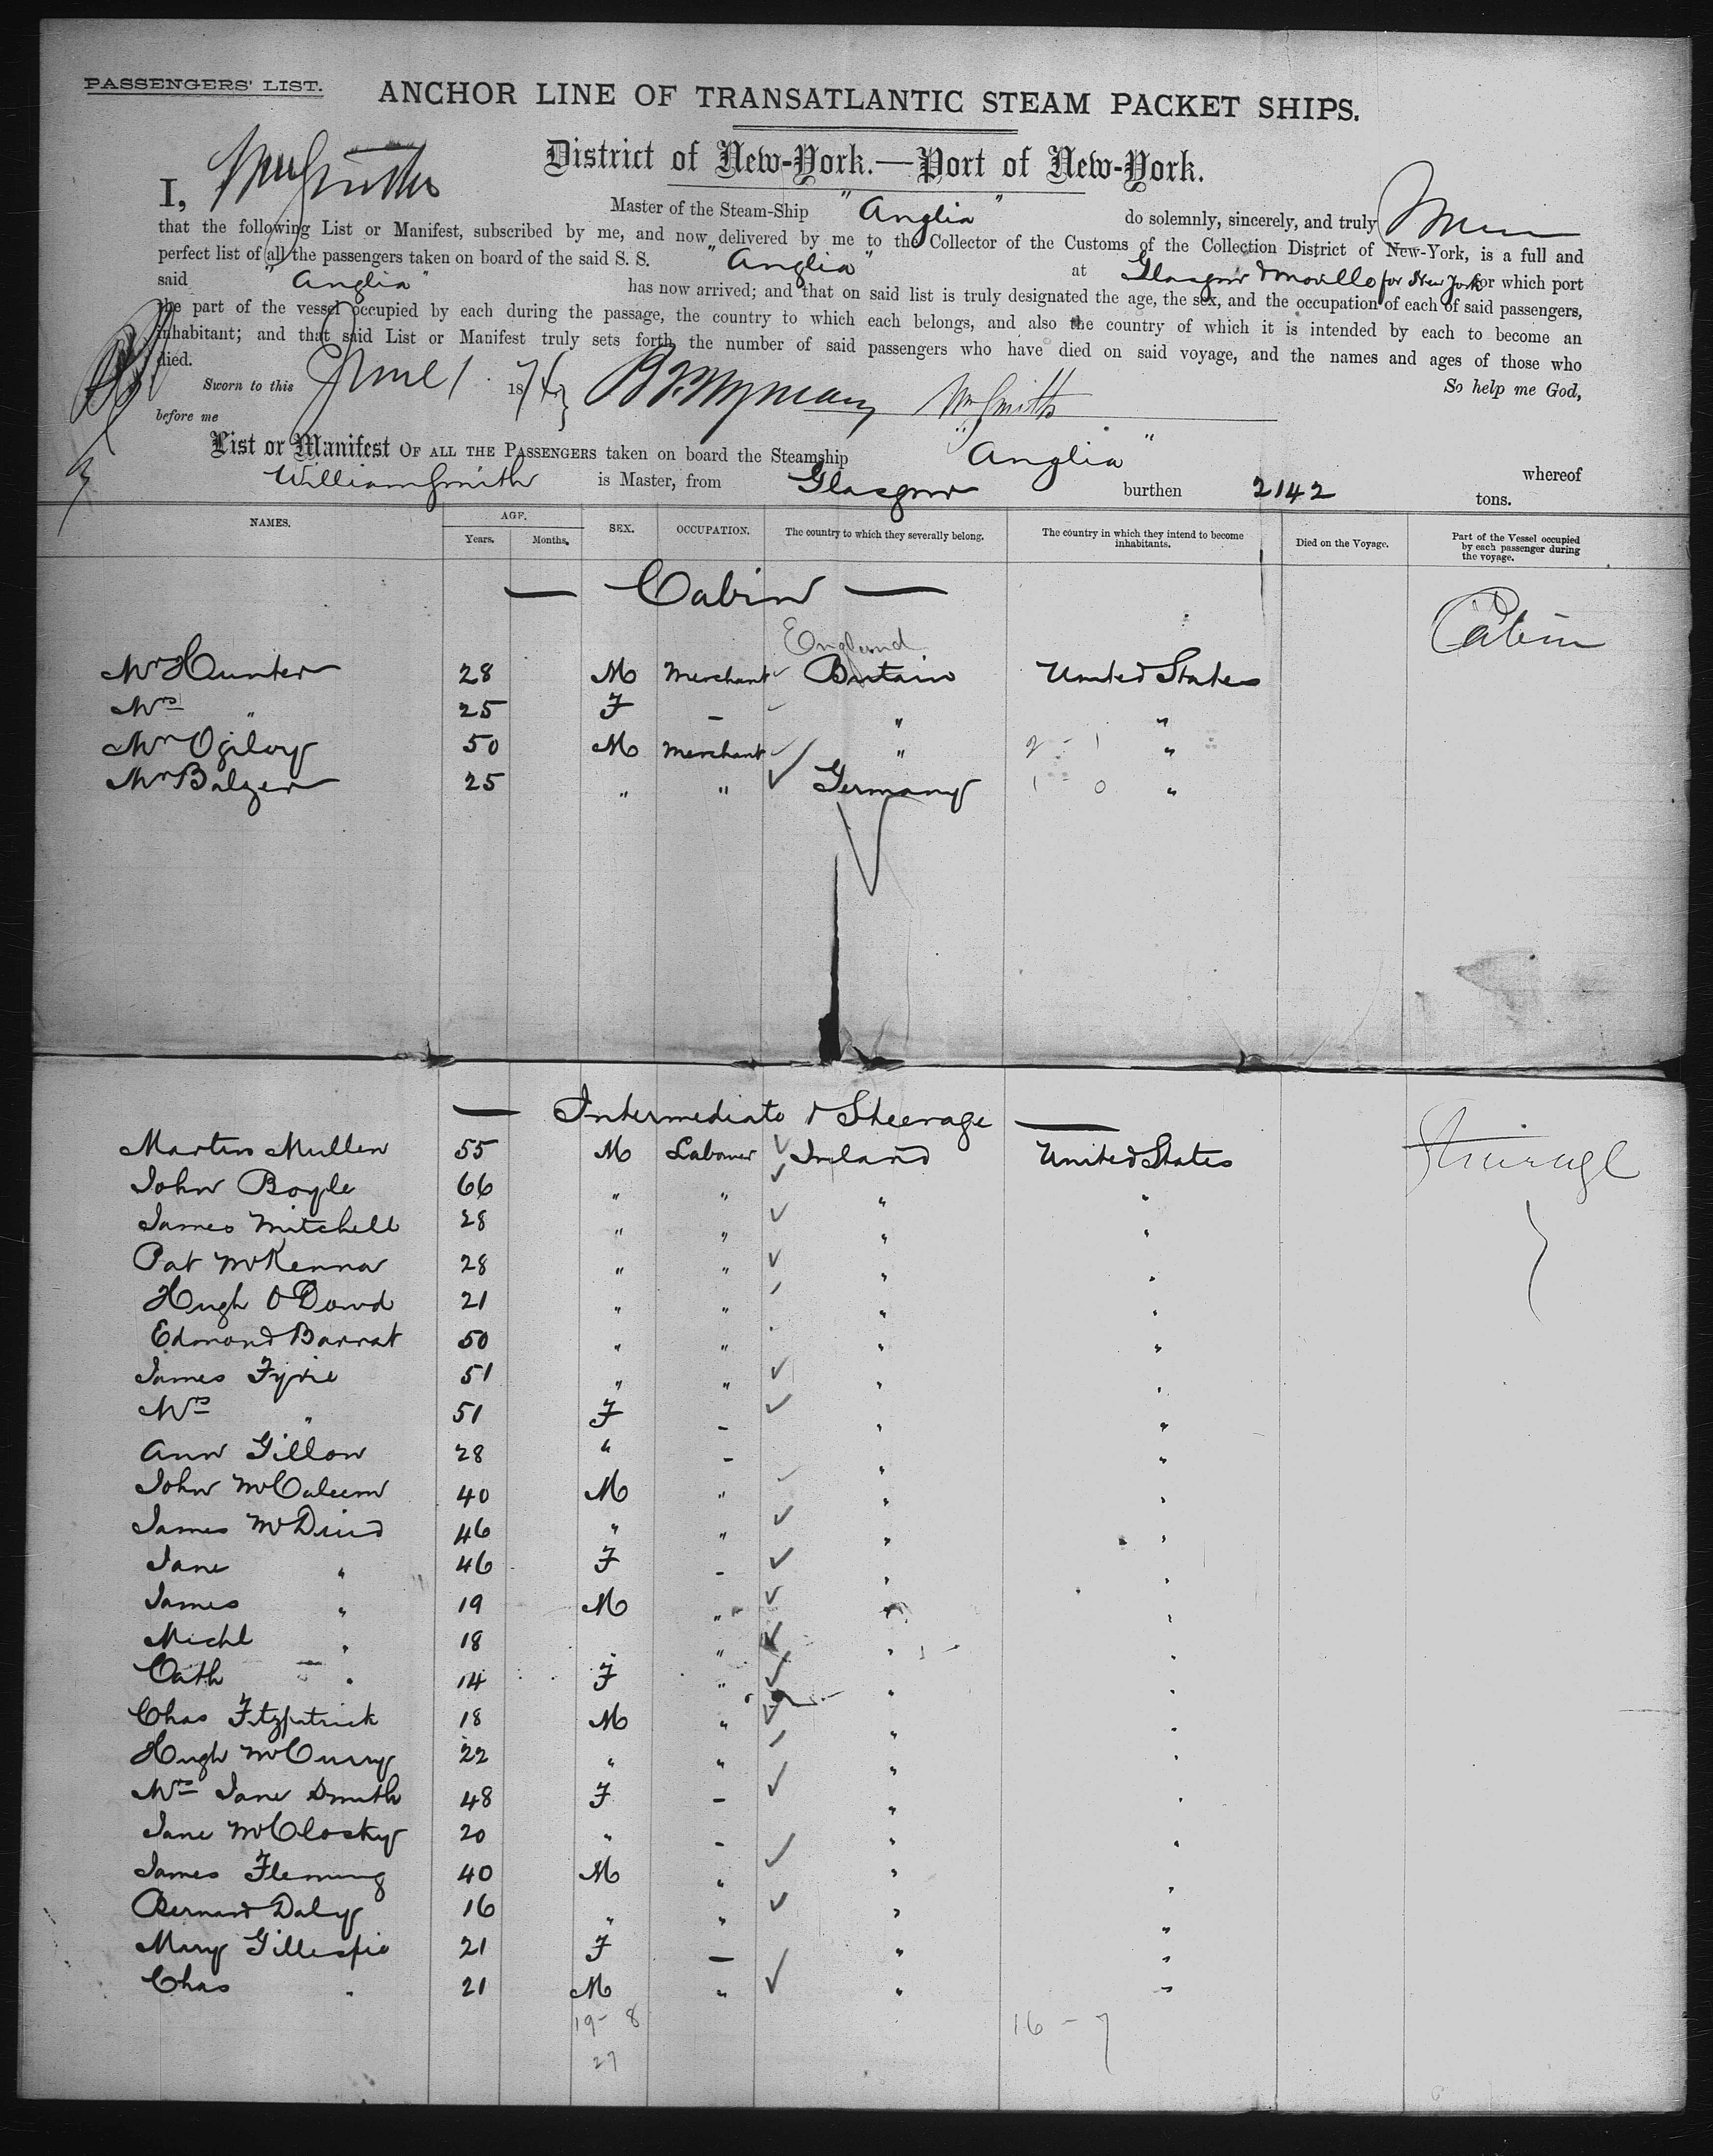 PASSENGERS' LIST.
ANCHOR LINE OF TRANSATLANTIC STEAM PACKET SHIPS.
District of New-York.—Port of New-York.
I, Wm Smith Master of the Steam-Ship "Anglia" do solemnly, sincerely, and truly Swear
that the following List or Manifest, subscribed by me, and now delivered by me to the Collector of the Customs of the Collection District of New-York, is a full and
perfect list of all the passengers taken on board of the said S. S. "Anglia" at Glasgow & Moville for New York for which port
said "Anglia" has now arrived; and that on said list is truly designated the age, the sex, and the occupation of each of said passengers,
the part of the vessel occupied by each during the passage, the country to which each belongs, and also the country of which it is intended by each to become an
inhabitant; and that said List or Manifest truly sets forth the number of said passengers who have died on said voyage, and the names and ages of those who
died.
So help me God,
Sworn to this June 1 1874 Wm Smith
before me
List or Manifest OF ALL THE PASSENGERS taken on board the Steamship "Anglia" whereof
William Smith is Master, from Glasgow burthen 2142 tons.
NAMES. AGE. Years. Months. SEX. OCCUPATION. The country to which they severally belong. The country in which they intend to become inhabitants. Died on the Voyage. Part of the Vessel occupied by each passenger during the voyage.
— Cabin — Cabin
England
Mr Hunter 28 M Merchant Britain United States
Mrs " 25 F - " "
Mr Ogilvy 50 M Merchant " 2 - 1 "
Mr Balzer 25 " " Germany 1 0 "
— Intermediate & Steerage —
Martin Mullen 55 M Labourer Ireland United States Steerage
John Boyle 66 " " " "
James Mitchell 28 " " " "
Pat McKenna 28 " " " "
Hugh O'Dowd 21 " " " "
Edmond Barrat 50 " " " "
James Fyvie 51 " " " "
Mrs " 51 F - " "
Ann Gillon 28 " - " "
John 40 M " " "
James 46 " " " "
Jane " 46 F - " "
James " 19 M " " "
Michl " 18 " " " "
Cath " 14 F " " "
Chas Fitzpatrick 18 M " " "
Hugh McCurry 22 " " " "
Mrs Jane Smith 48 F - " "
Jane McClosky 20 " - " "
James Fleming 40 M " " "
Bernard Daly 16 " " " "
Mary Gillespie 21 F — " "
Chas " 21 M " " "
19 - 8 16 - 7
27